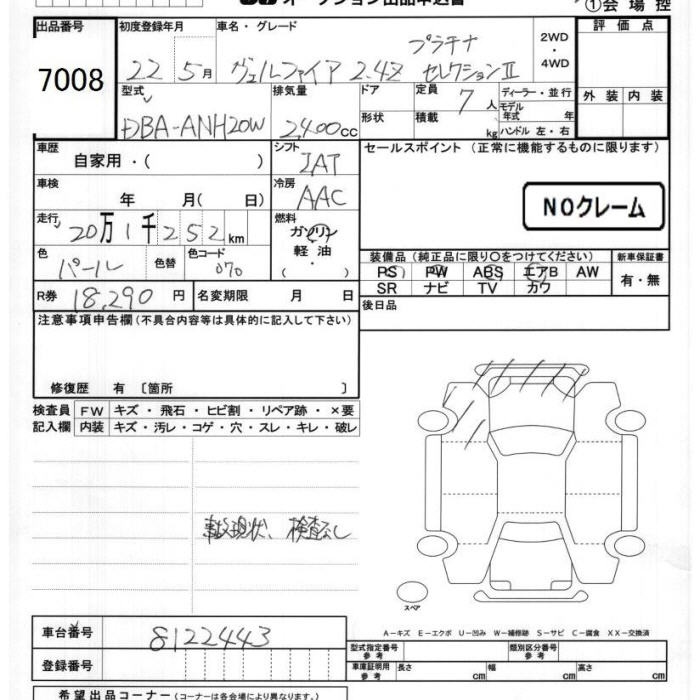 オークション出品申込書 ①会場控
出品番号 初度登録年月 車名・グレード 評価点
7008 22 5月 ヴェルファイア 2.4Z プラチナ セレクションⅡ 2WD・4WD
型式 排気量 ドア 定員 7人 ディーラー・並行 外装 内装
DBA-ANH20W 2400cc 形状 積載 kg モデル年式 年 ハンドル 左・右
車歴 シフト セールスポイント(正常に機能するものに限ります)
自家用・( ) IAT
車検 冷房
年 月(日) AAC NOクレーム
走行 燃料
20万1千252km ガソリン
色 色替 色コード 軽油 装備品(純正品に限り○をつけてください) 新車保証書
パール 070 (・) PS PW ABS エアB AW 有・無
R券 18,290円 名変期限 月 日 SR ナビ TV カワ
注意事項申告欄(不具合内容等は具体的に記入して下さい) 後日品
修復歴 有〔箇所 〕
検査員 FW キズ・飛石・ヒビ割・リペア跡・×要
記入欄 内装 キズ・汚レ・コゲ・穴・スレ・キレ・破レ
事故現状、検査なし
スペア
A-キズ E-エクボ U-凹み W-補修跡 S-サビ C-腐食 XX-交換済
車台番号 8122443 型式指定番号 参考 類別区分番号 参考
登録番号 車庫証明用 参考 長さ cm 幅 cm 高さ cm
希望出品コーナー(コーナーは各会場により異なります。)